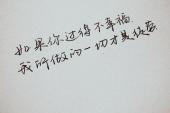 如果你过得不幸福
我所做的一切才是徒劳